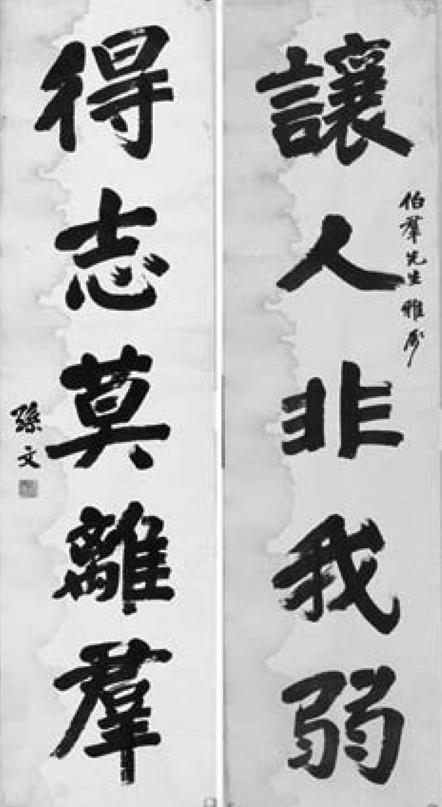 伯羣先生雅屬
讓人非我弱
得志莫離羣
孫文